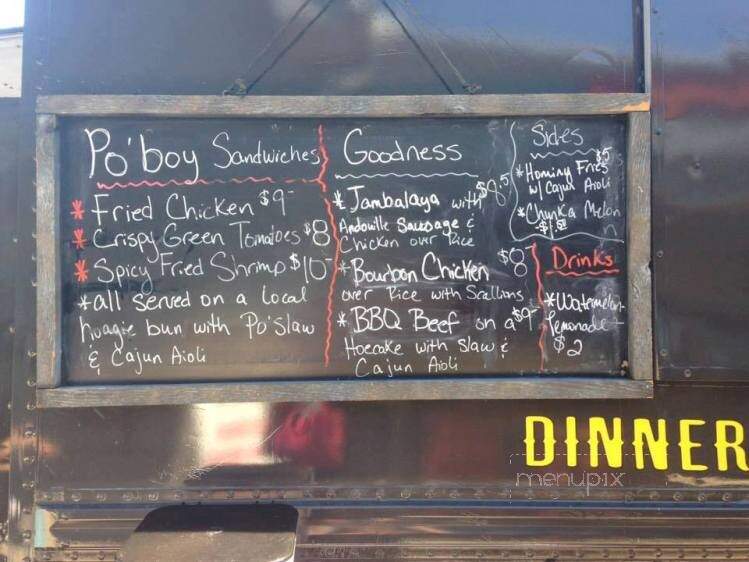 Po'boy Sandwiches
* Fried Chicken $9-
* Crispy Green Tomatoes $8
* Spicy Fried Shrimp $10-
* all served on a local
hoagie bun with Po'slaw
& Cajun Aioli
Goodness
* Jambalaya with $8.5
Andouille Sausage &
Chicken over Rice
* Bourbon Chicken $8
over Rice with Scallions
* BBQ Beef on a $9-
Hoecake with Slaw &
Cajun Aioli
Sides
* Hominy Fries $5
w/ Cajun Aioli
* Chunka Melon
$1.50
Drinks
* Watermelon
lemonade
$2
DINNER
menupix